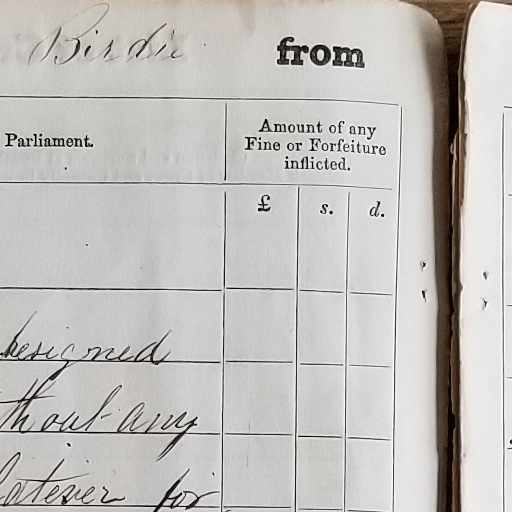 Birdie from
Parliament.
Amount of any
Fine or Forfeiture
inflicted.
£ s. d.
Resigned
thout any
hatever for